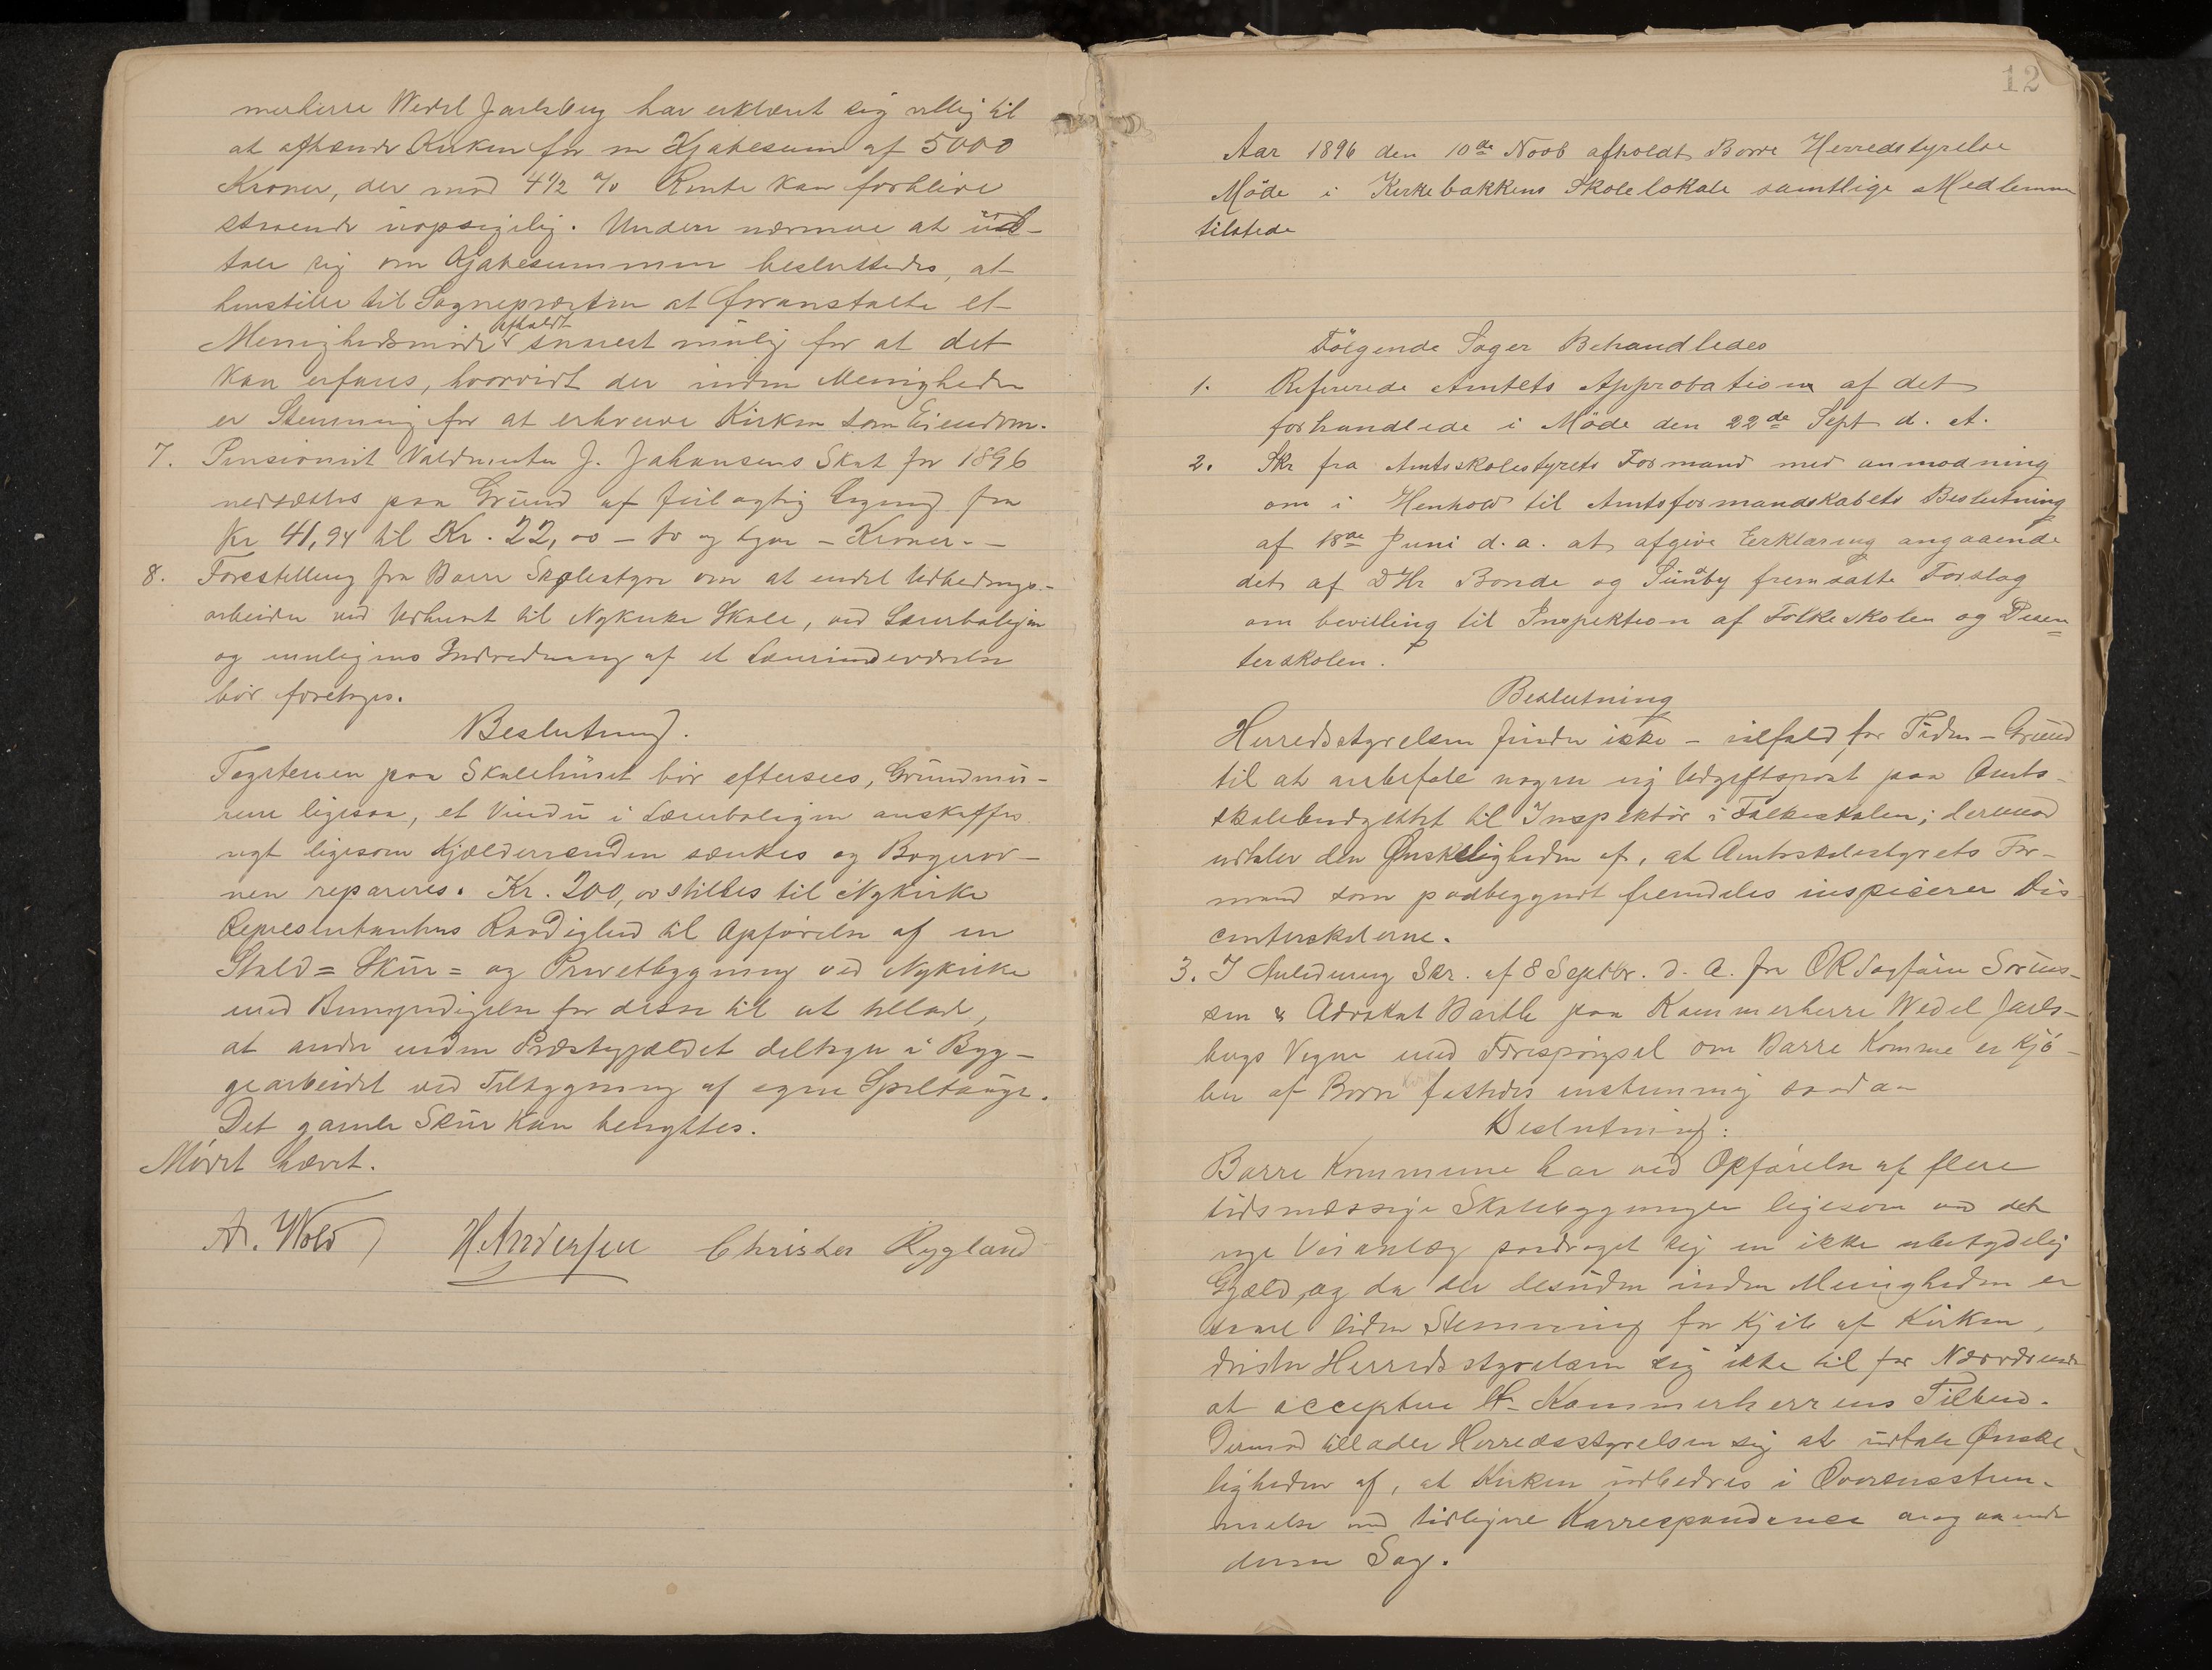 merherre Wedel Jarlsberg har erklæret sig villig til
at afhænde Kirken for en Kjøbesum af 5000
Kroner, der mod 4 1/2 % Rente kan forblive
staaende uopsigelig. Uden nærmere at üd-
tale sig om Kjøbesummen besluttedes, at
henstille til Sognepræsten at foranstalte et
Menighedsmöde afholdt snarest mülig for at det
kan erfares, hvorvidt der inden Menigheden
er Stemning for at erhverve Kirken som Eiendom.
7. Pensioneret Valdmester J. Johansens Skat for 1896
nedsættes paa Gründ af feilagtig Ligning fra
Kr 41,94 til Kr. 22,00 - to og tyve - Kroner. -
8. Forestilling fra Borre Skolestyre om at endel Udbedrings-
arbeider ved Udhuset til Nykirke Skole, ved Lærerboligen
og muligens Indredning af et Lærerindeværelse
bör foretages.
Beslutning.
Tagstenen paa Skolehüset bör eftersees, Gründmü-
rene ligesaa, et Vindü i Lærerboligen anskaffes
nyt ligesom Kjælderrenden sænkes og Bagerov-
nen repareres. Kr. 200,00 stilles til Nykirke
Repræsentanters Raadighed til Opförelse af en
Stald= Skür= og Privetbygning ved Nykirke
med Bemyndigelse for disse til at tillade,
at andre inden Præstegjældet deltager i Byg-
gearbeidet ved Tilbygning af egne Spiltaüge.
Det gamle Skür kan benyttes.
Mödet hævet.
A. Wold H. Andersen Christer Rygland
12
Aar 1896 den 10de Novb afholdt Borre Herredstyrelse
Möde i Kirkebakkens Skolelokale samtlige Medlemmer
tilstede
Fölgende Sager Behandledes
1. Refererede Amtets Approbation af det
forhandlede i Möde den 22de Sept d. A.
2. Skr fra Amtsskolestyrets Formand med anmodning
om i Henhold til Amtsformandskabets Beslutning
af 18de Juni d. a. at afgive Erklæring angaaende
det af DHr Bonde og Sündby fremsatte Forslag
om bevilling til Inspektion af Folkeskolen og Disen=
terskolen.
Beslutning
Herredsstyrelsen finder ikke - ialfald for Tiden - Gründ
til at anbefale nogen ny Udgiftspost paa Amts-
skolebudgettet til Inspektör i Folkeskolen; derimod
udtaler den Ønskeligheden af, at Amtsskolestyrets For-
mand som paabegyndt fremdeles inspicerer Dis
centerskolerne.
3. I Anledning Skr. af 8 Septbr. d. A. fra OR Sagförer Sörens-
sen & Advokat Barth paa Kammerherre Wedel Jarls-
bergs Vegne med Forespörgsel om Borre Komme er Kjö-
ber af Borre Kirke fattedes enstemmig saadan
Beslutning:
Borre Kommune har ved Opförelse af flere
tidsmæssige Skolebygninger ligesom ved det
nye Veianlæg paadraget sig en ikke ubetydelig
Gjæld, og da der desüden inden Menigheden er
saare liden Stemning for Kjöb af Kirken,
drister Herredsstyrelsen sig ikke til for Nærværende
at acceptere Hr. Kammerherrens Tilbud.
Derimod tillader Herredsstyrelsen sig at üdtale Ønske-
ligheden af, at Kirken üdbedres i Overensstem-
melse med tidligere Korrespondence angaaende
denne Sag.